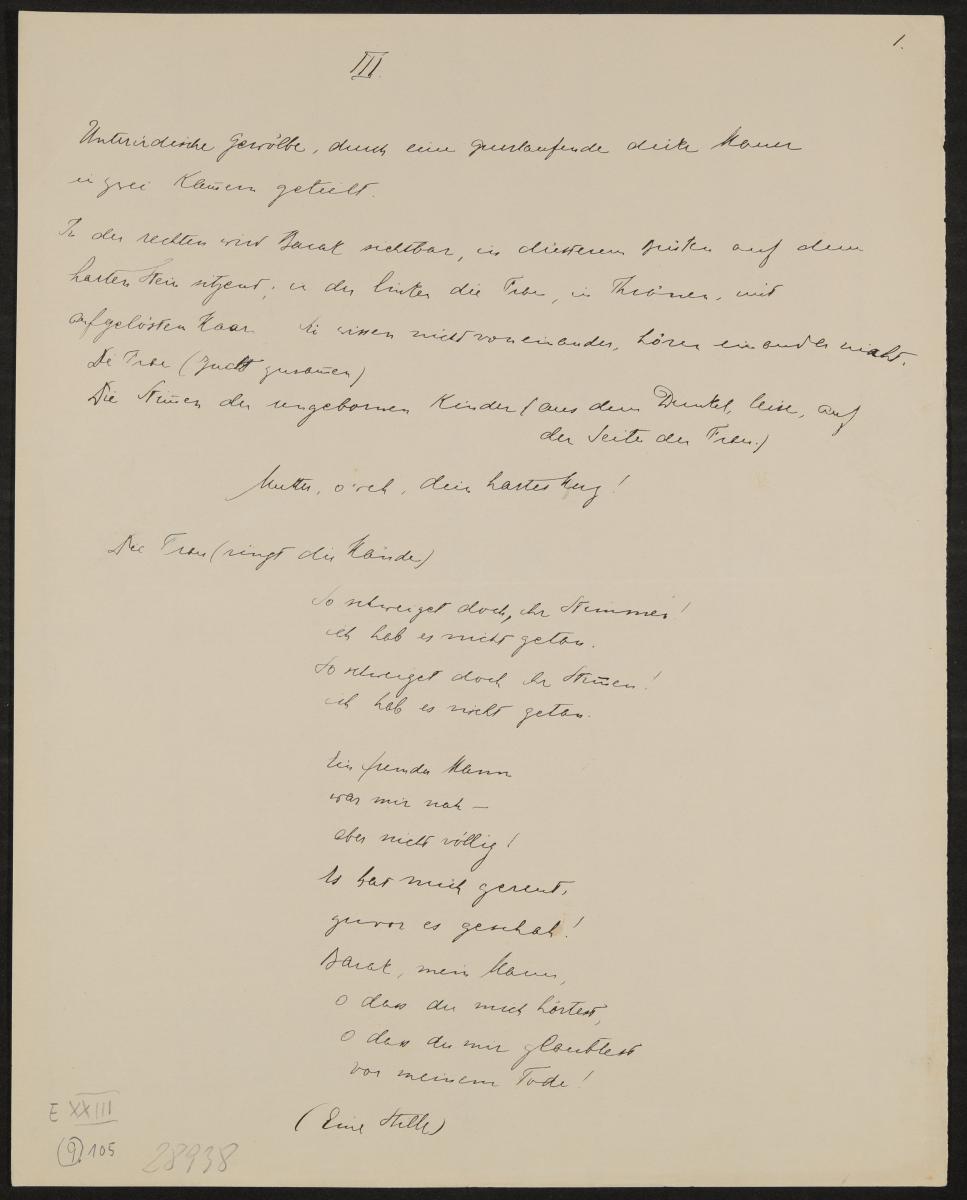 1.
III.
Unterirdische Gewölbe, durch eine querlaufende dicke Mauer
in zwei Kam̄ern geteilt.
In der rechten wird Barak sichtbar, in düsterem Brüten auf dem
harten Stein sitzend; in der linken die Frau, in Thränen, mit
aufgelösten Haar. Sie wissen nicht voneinander, hören einander nicht.
Die Frau (zuckt zusam̄en)
Die Stim̄en der ungebornen Kinder (aus dem Dunkel, leise, auf
der Seite der Frau.)
Mutter, o weh, dein hartes Herz!
Die Frau (ringt die Hände)
So schweiget doch, ihr Stimmen!
ich hab es nicht getan.
So schweiget doch ihr Stim̄en!
ich hab es nicht getan.
Ein fremder Mann
war mir nah —
aber nicht völlig!
Es hat mich gereut,
zuvor es geschah!
Barak, mein Mann,
o dass du mich hörtest,
o dass du mir glaubtest
vor meinem Tode!
(Eine Stille)
E XXIII
(9) 105
28938